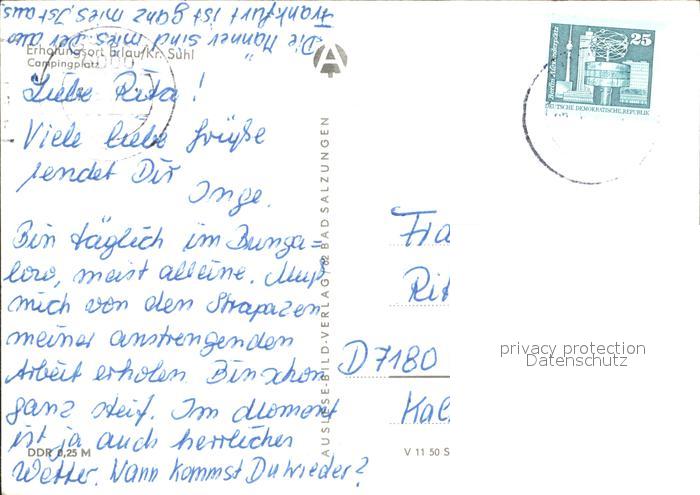 Erholungsort Erlau/Kr. Suhl
Campingplatz
Liebe Rita!
Viele liebe Grüße
sendet Dir
Inge.
Bin täglich im Bunga=
low, meist alleine. Muß
mich von den Strapazen
meiner anstrengenden
Arbeit erholen. Bin schon
ganz steif. Im Moment
ist ja auch herrliches
Wetter. Wann kommst Du wieder?
"Die Männer sind mies. Der aus
Frankfurt ist ganz mies. Ist aus
DDR 0,25 M
AUSLESE-BILD-VERLAG BAD SALZUNGEN
V 11 50 S
25
Berlin, Alexanderplatz
DEUTSCHE DEMOKRATISCHE REPUBLIK
Fra
Rit
D 7180
Kal
privacy protection
Datenschutz